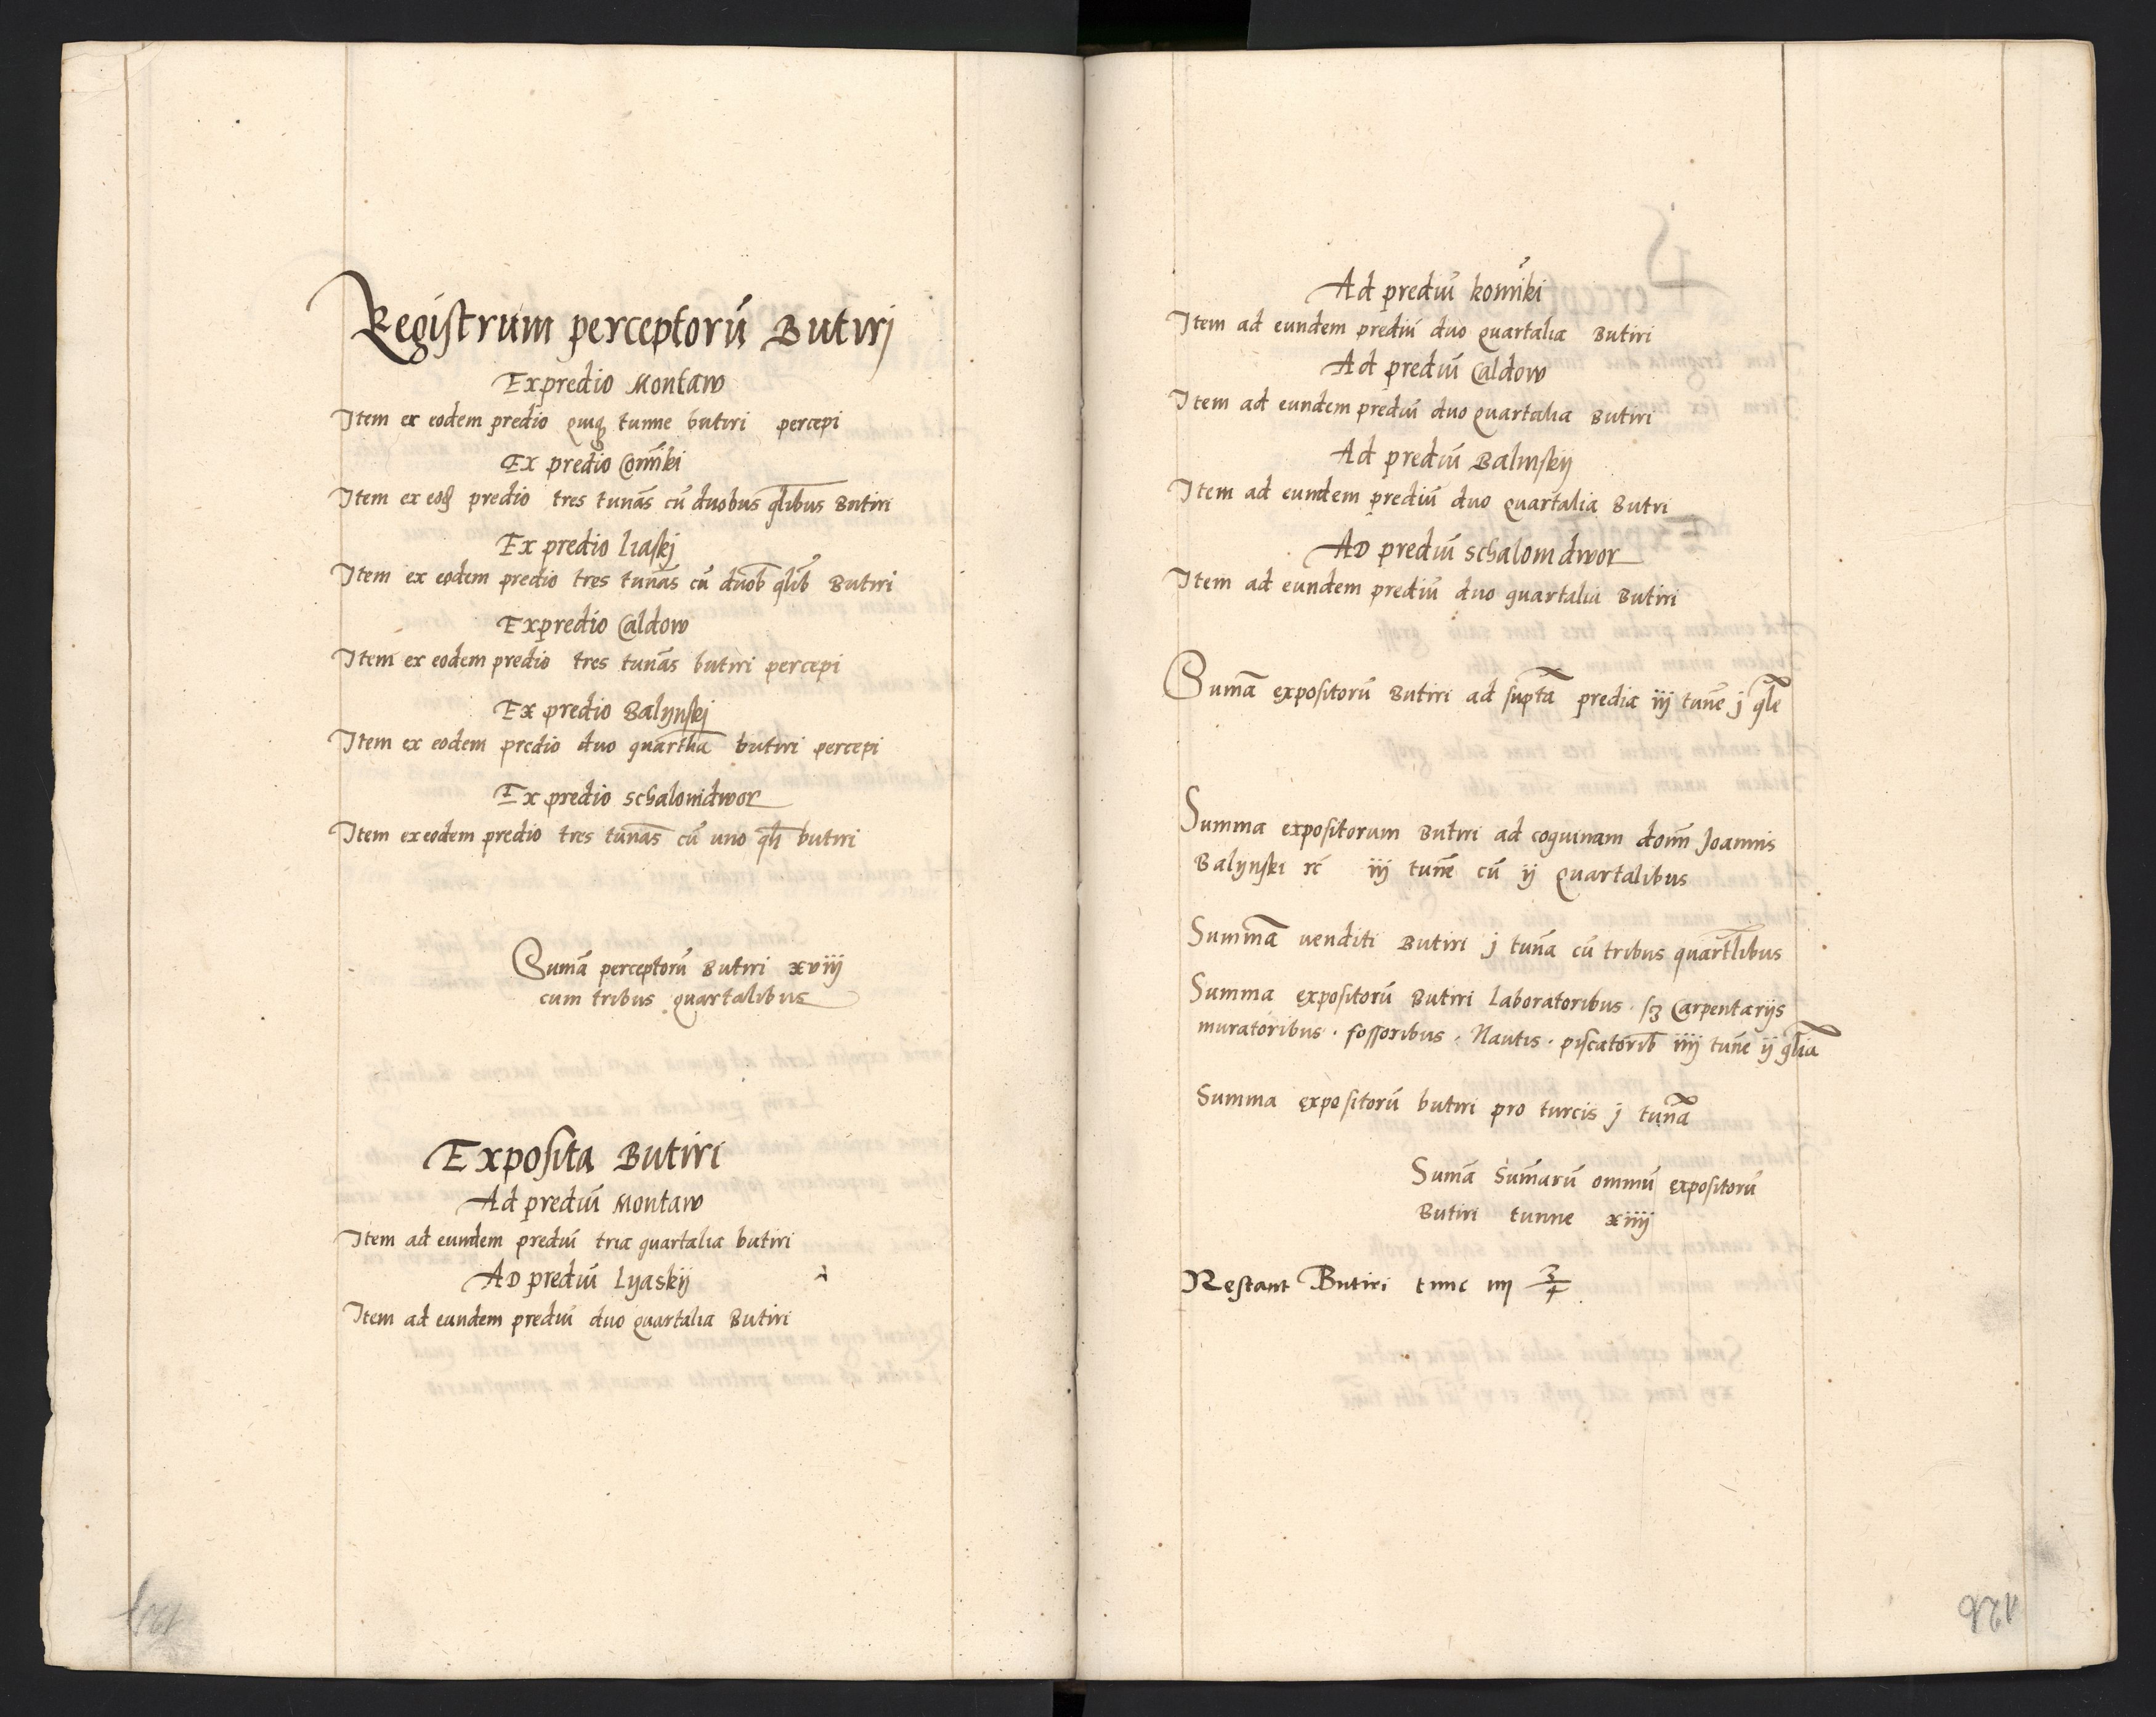 Registrum perceptorū Butiri
Ex predio Montaw
Item ex eodem predio quiqꝫ tunne butiri percepi
Ex predio Comīki
Item ex eodꝫ predio tres tunās cū duobus qlibus Butiri
Ex predio liaskj
Item ex eodem predio tres tunās cū duob qlib Butiri
Ex predio Caldow
Item ex eodem predio tres tunās butiri percepi
Ex predio Balynskj
Item ex eodem predio duo quartlia butiri percepi
Ex predio schalomdwor
Item ex eodem predio tres tunas cū uno qli butiri
Sumā perceptorū Butiri xviij
cum tribus quartalibus
Exposita Butiri
Ad prediū Montaw
Item ad eundem prediū tria quartalia butiri
Ad prediū Lyaskij
Item ad eundem prediū duo quartalia Butiri
Ad prediū komīki
Item ad eundem prediū duo quartalia Butiri
Ad prediū Caldow
Item ad eundem prediū duo quartalia Butiri
Ad prediū Balinskij
Item ad eundem prediū duo quartalia Butri
Ad prediū schalomdwor
Item ad eundem prediū duo quartalia Butiri
Sumā expositorū Butiri ad supta predia iij tunē j qle
Summa expositorum Butiri ad coquinam domī Joannis
Balynski rć iij tunē cū ij quartalibus
Summā venditi Butiri j tuna cū tribus quartlibus
Summa expositorū Butiri Laboratoribus · sꝫ Carpentarijs
muratoribus · fossoribus · Nautis · piscatorib iiij tune ij qlia
Summa expositorū butiri pro turcis j tuna
Sumā Sumarū omniū expositorū
Butiri tunne xiiij
Restant Butiri tune iiij 3/4
126